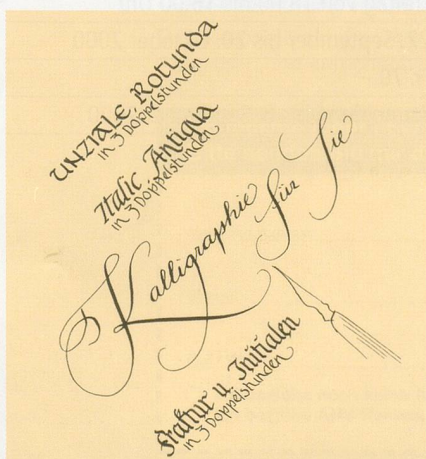 UNZIALE, ROTUNDA
in 3 Doppelstunden
Italic, Antiqua
in 3 Doppelstunden
Kalligraphie für Sie
Fraktur u. Initialen
in 3 Doppelstunden